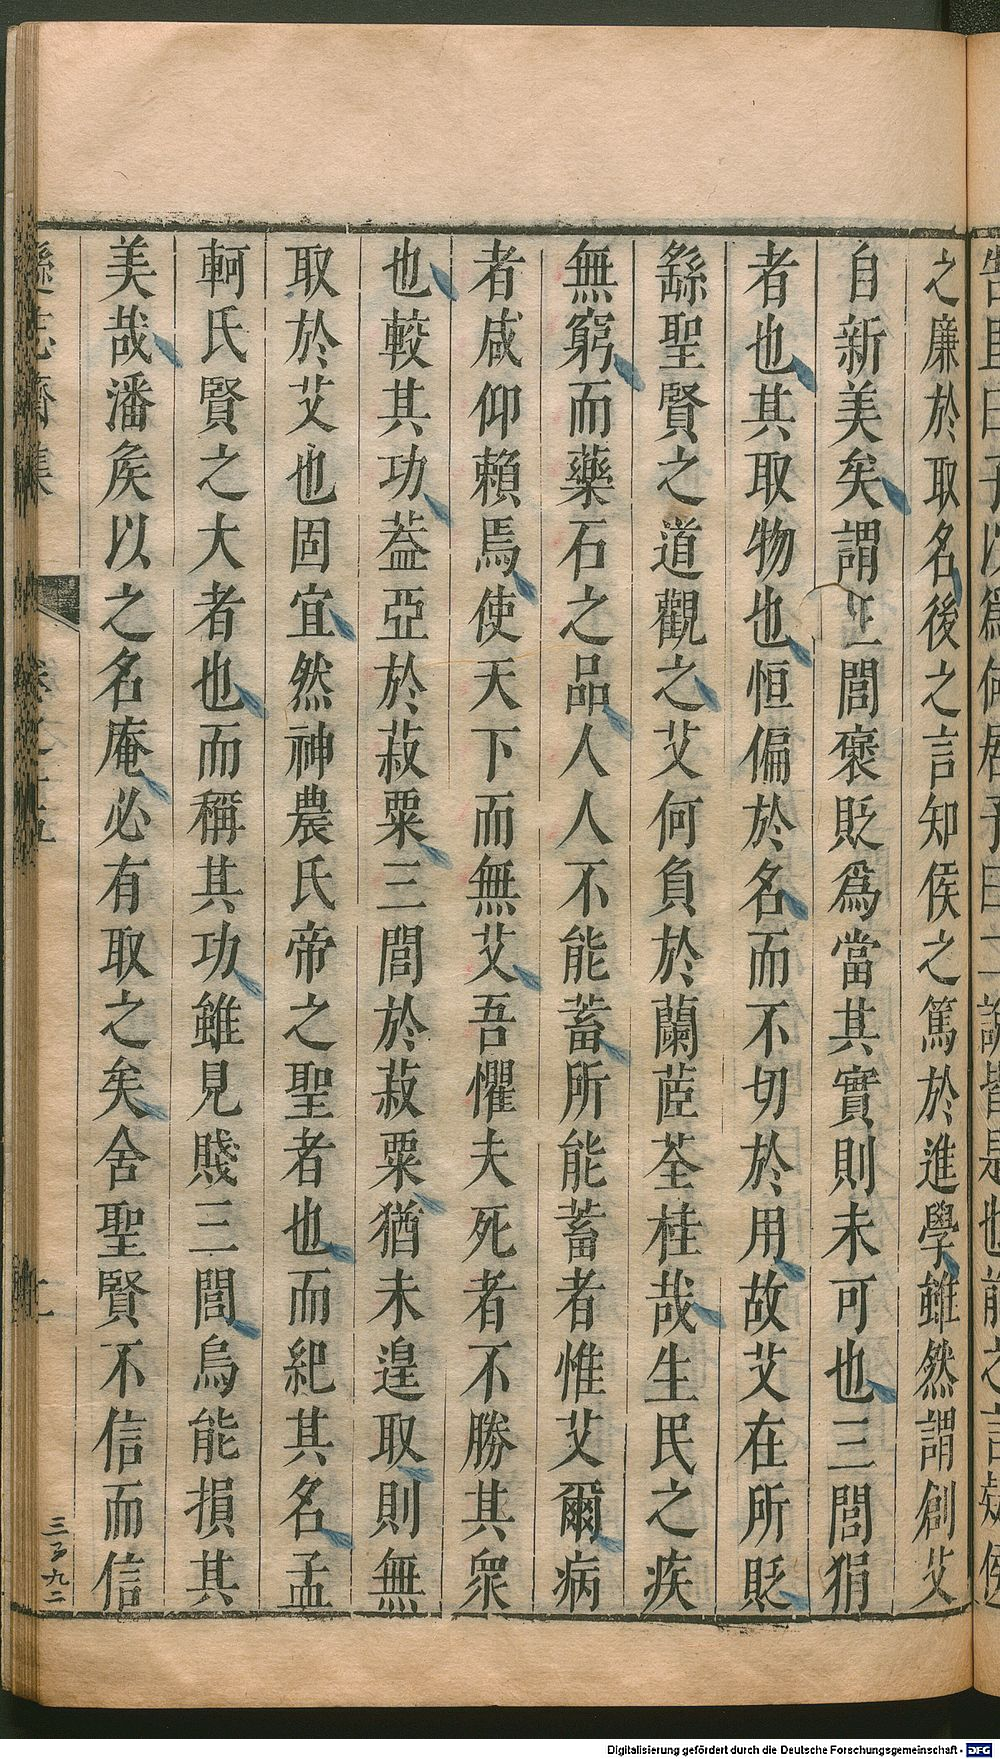 之廉於取名後之言知侯之篤於進學雖然謂創艾
自新美矣謂三閭褒貶爲當其實則未可也三閭狷
者也其取物也恒偏於名而不切於用故艾在所貶
繇聖賢之道觀之艾何負於蘭茝荃桂哉生民之疾
無窮而藥石之品人人不能蓄所能蓄者惟艾爾病
者咸仰賴焉使天下而無艾吾懼夫死者不勝其衆
也較其功葢亞於菽粟三閭於菽粟猶未遑取則無
取於艾也固宜然神農氏帝之聖者也而紀其名孟
軻氏賢之大者也而稱其功雖見賤三閭烏能損其
美哉潘矦以之名庵必有取之矣舍聖賢不信而信
遜志齋集
卷之十五
Digitalisierung gefördert durch die Deutsche Forschungsgemeinschaft - DFG